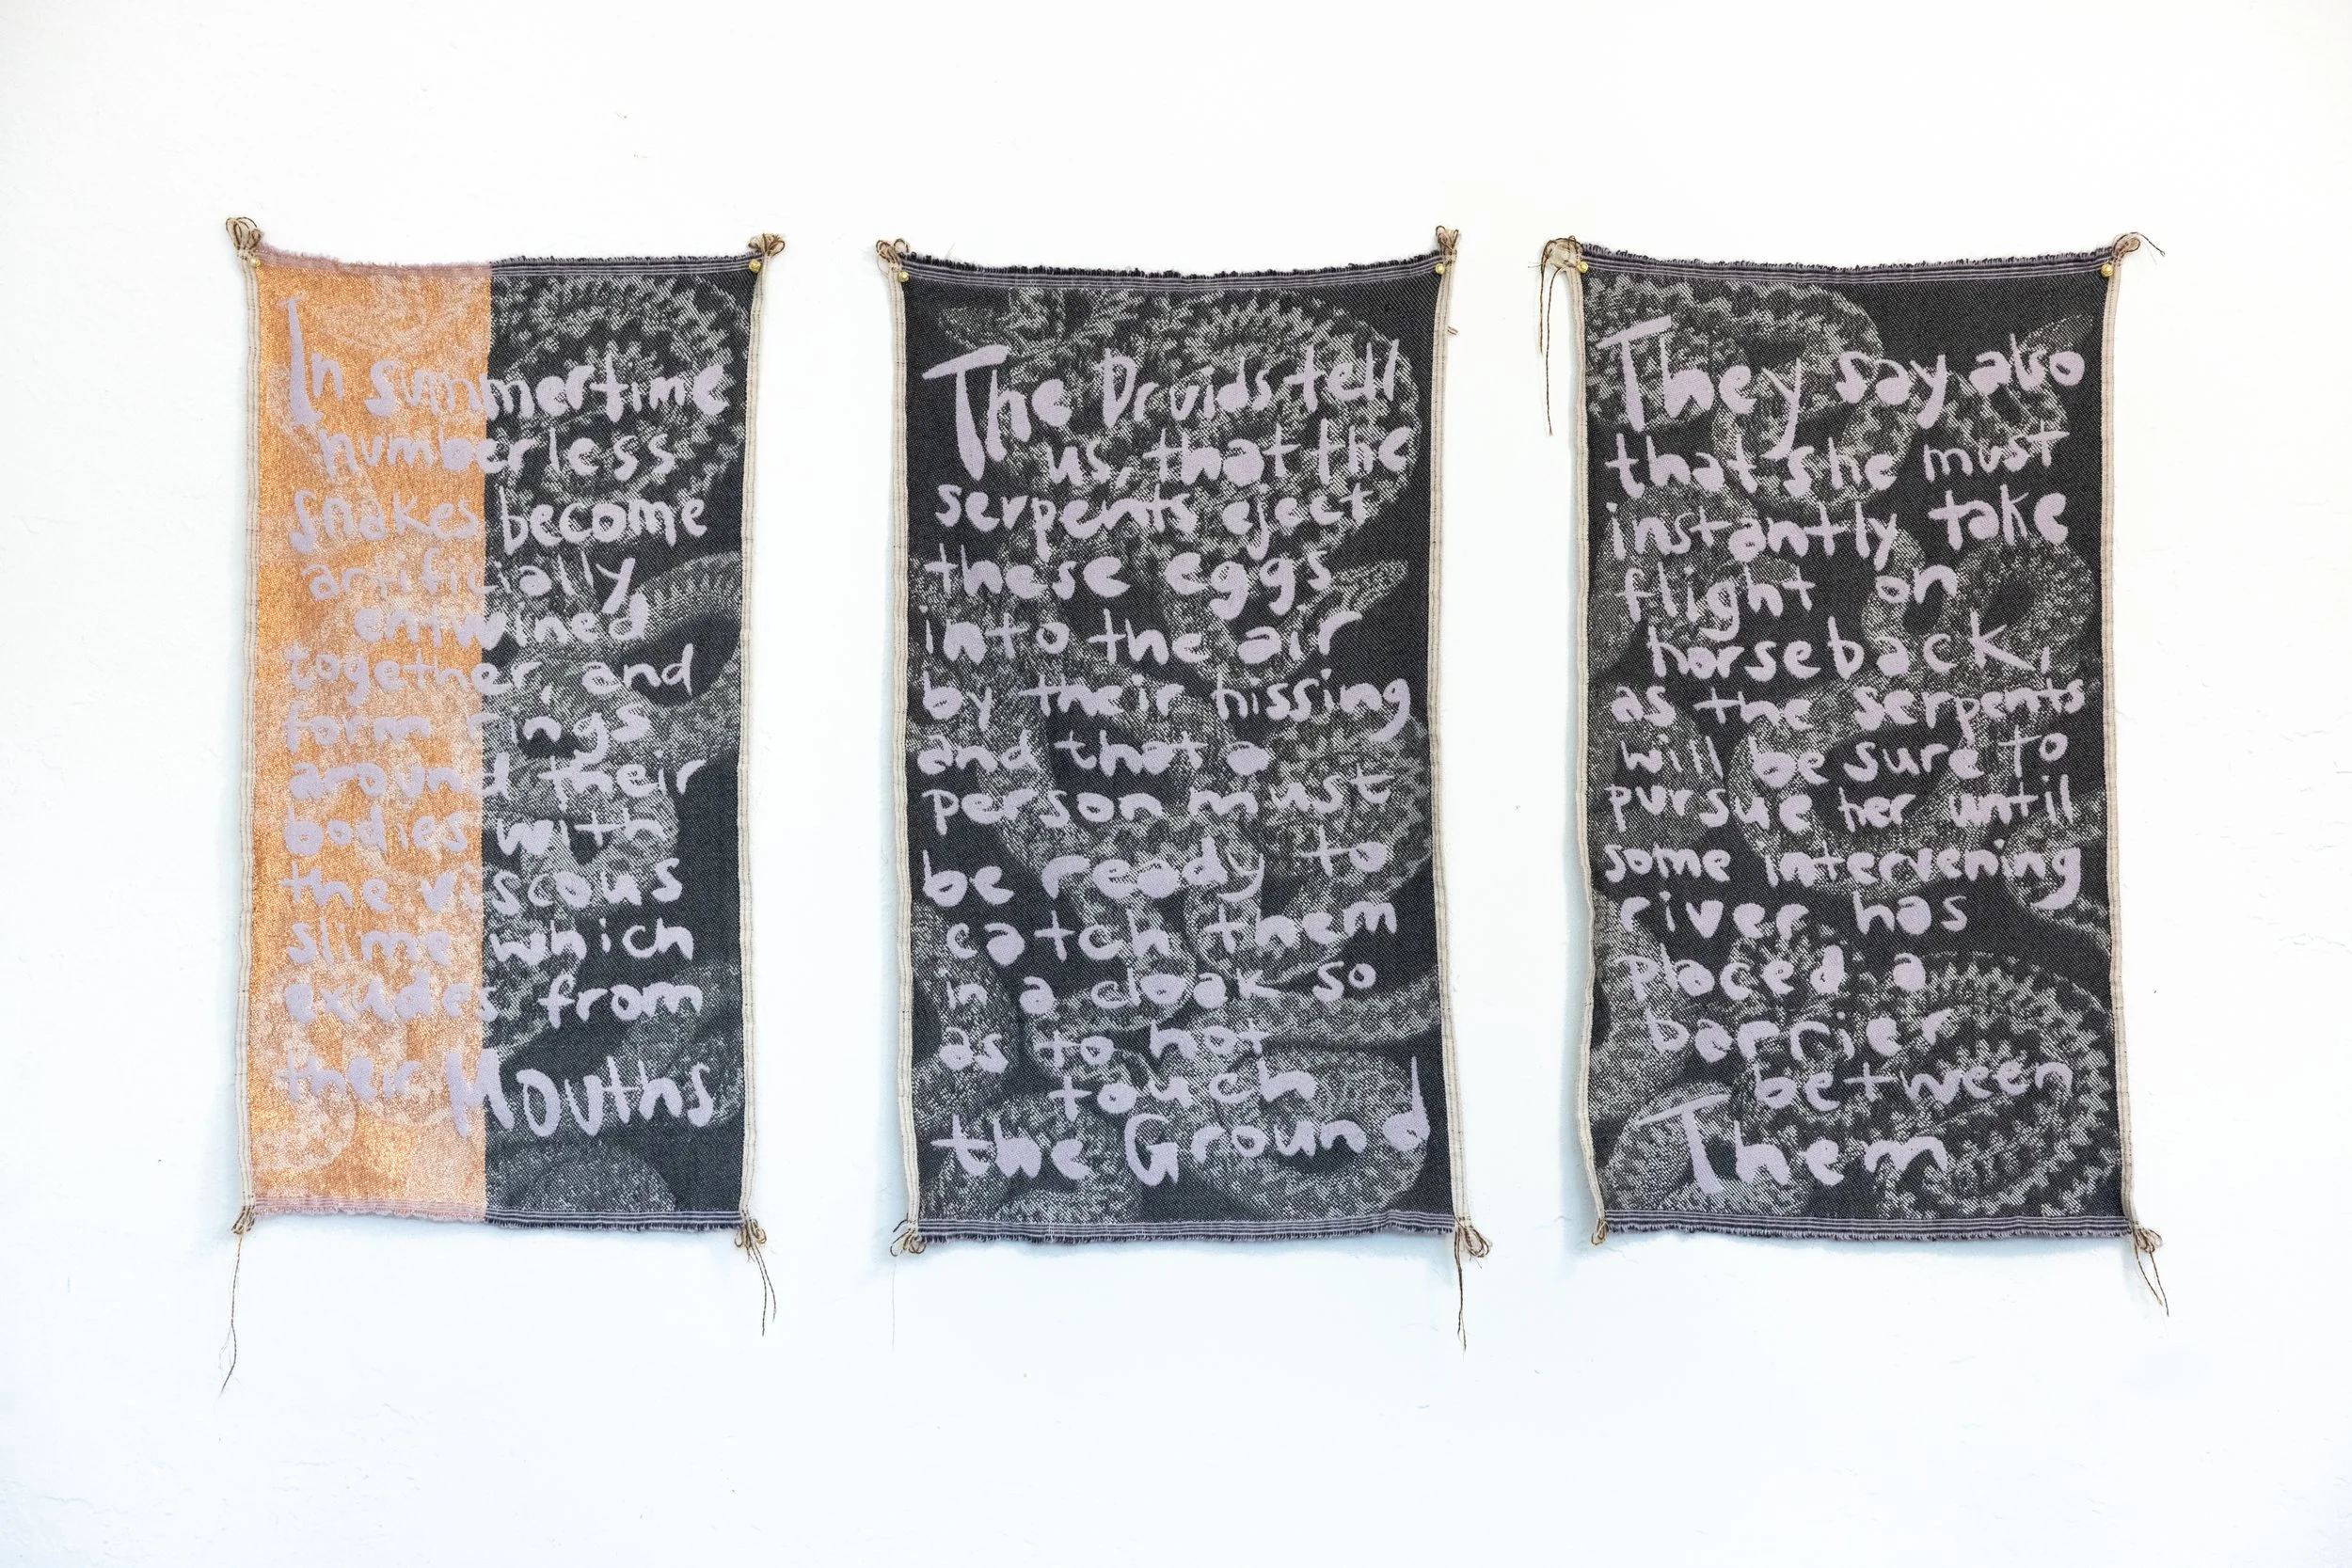 In summertime
numberless
snakes become
artificially
entwined
together, and
form rings
around their
bodies with
the viscous
slime which
exudes from
their Mouths
The Druids tell
us, that the
serpents eject
these eggs
into the air
by their hissing
and that a
person must
be ready to
catch them
in a cloak so
as to not
touch
the Ground
They say also
that she must
instantly take
flight on
horseback,
as the serpents
will be sure to
pursue her until
some intervening
river has
placed a
barrier
between
Them